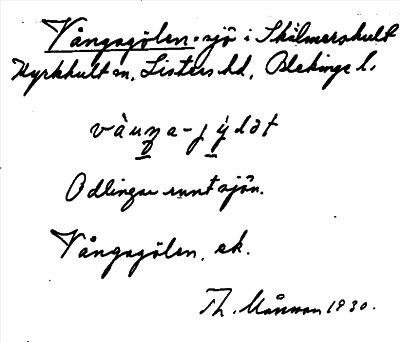 Vångagölen, sjö i Skälmershult
Kyrkhult sn, Listers hd, Blekinge l.
Odlingar runt sjön.
Vångagölen, ek.
Th. Månsson 1930.